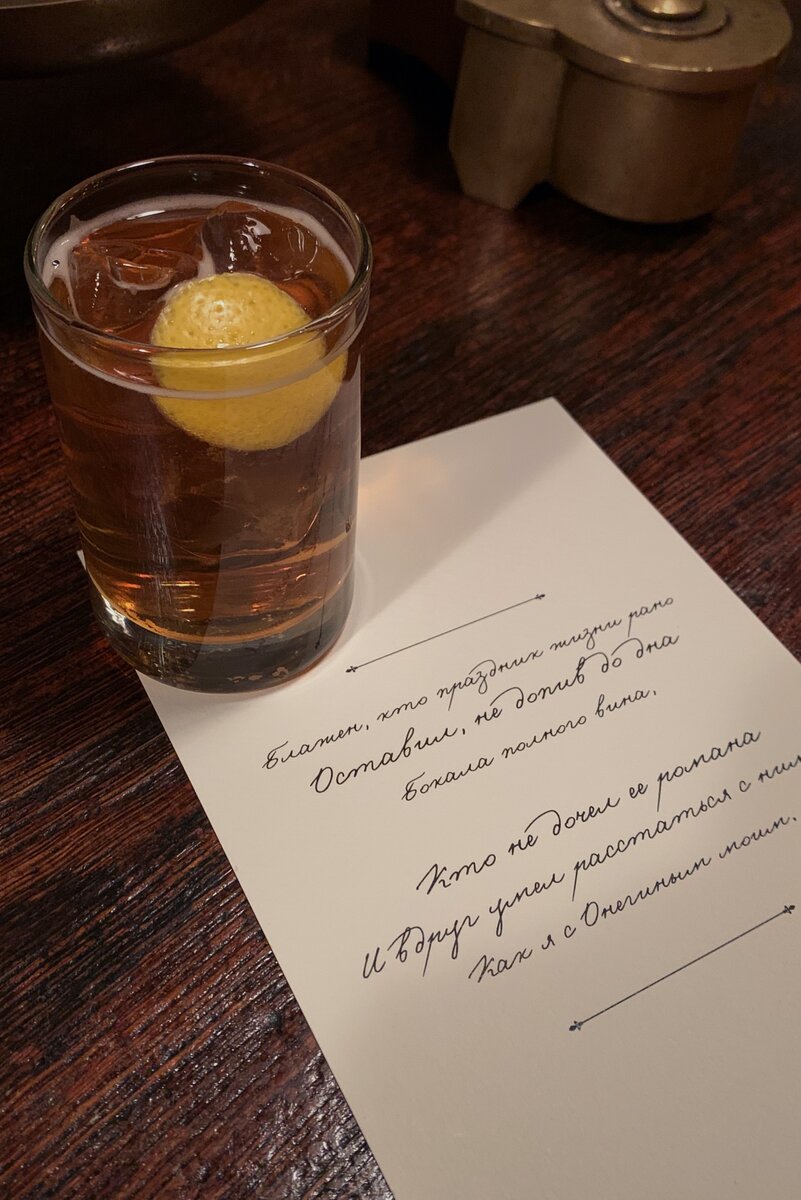 Блажен, кто праздник жизни рано
Оставил, не допив до дна
Бокала полного вина,
Кто не дочел ее романа
И вдруг умел расстаться с ним,
Как я с Онегиным моим.